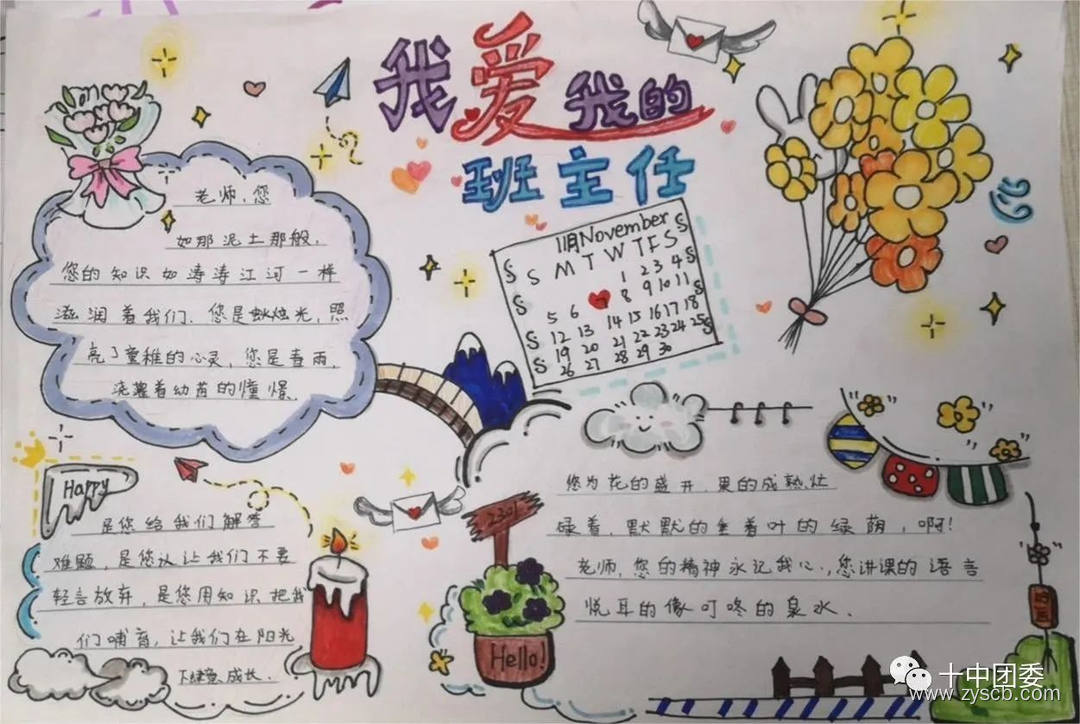 我爱我的
班主任
11月November
S M T W T F S
1 2 3 4
5 6 7 8 9 10 11
12 13 14 15 16 17 18
19 20 21 22 23 24 25
26 27 28 29 30
老师，您
如那泥土那般，
您的知识如涛涛江河一样
滋润着我们、您是烛光，照
亮了童稚的心灵，您是春雨，
浇灌着幼苗的憧憬.
Happy
是您给我们解答
难题，是您认让我们不要
轻言放弃，是您用知识把我
们哺育，让我们在阳光
下成长.
2301
Hello!
您为花的盛开、果的成熟灶
碌着、默默的垂着叶的绿荫，啊！
老师，您的精神永记我心，您讲课的语言
悦耳的像叮咚的泉水.
十中团委
www.zyscb.com